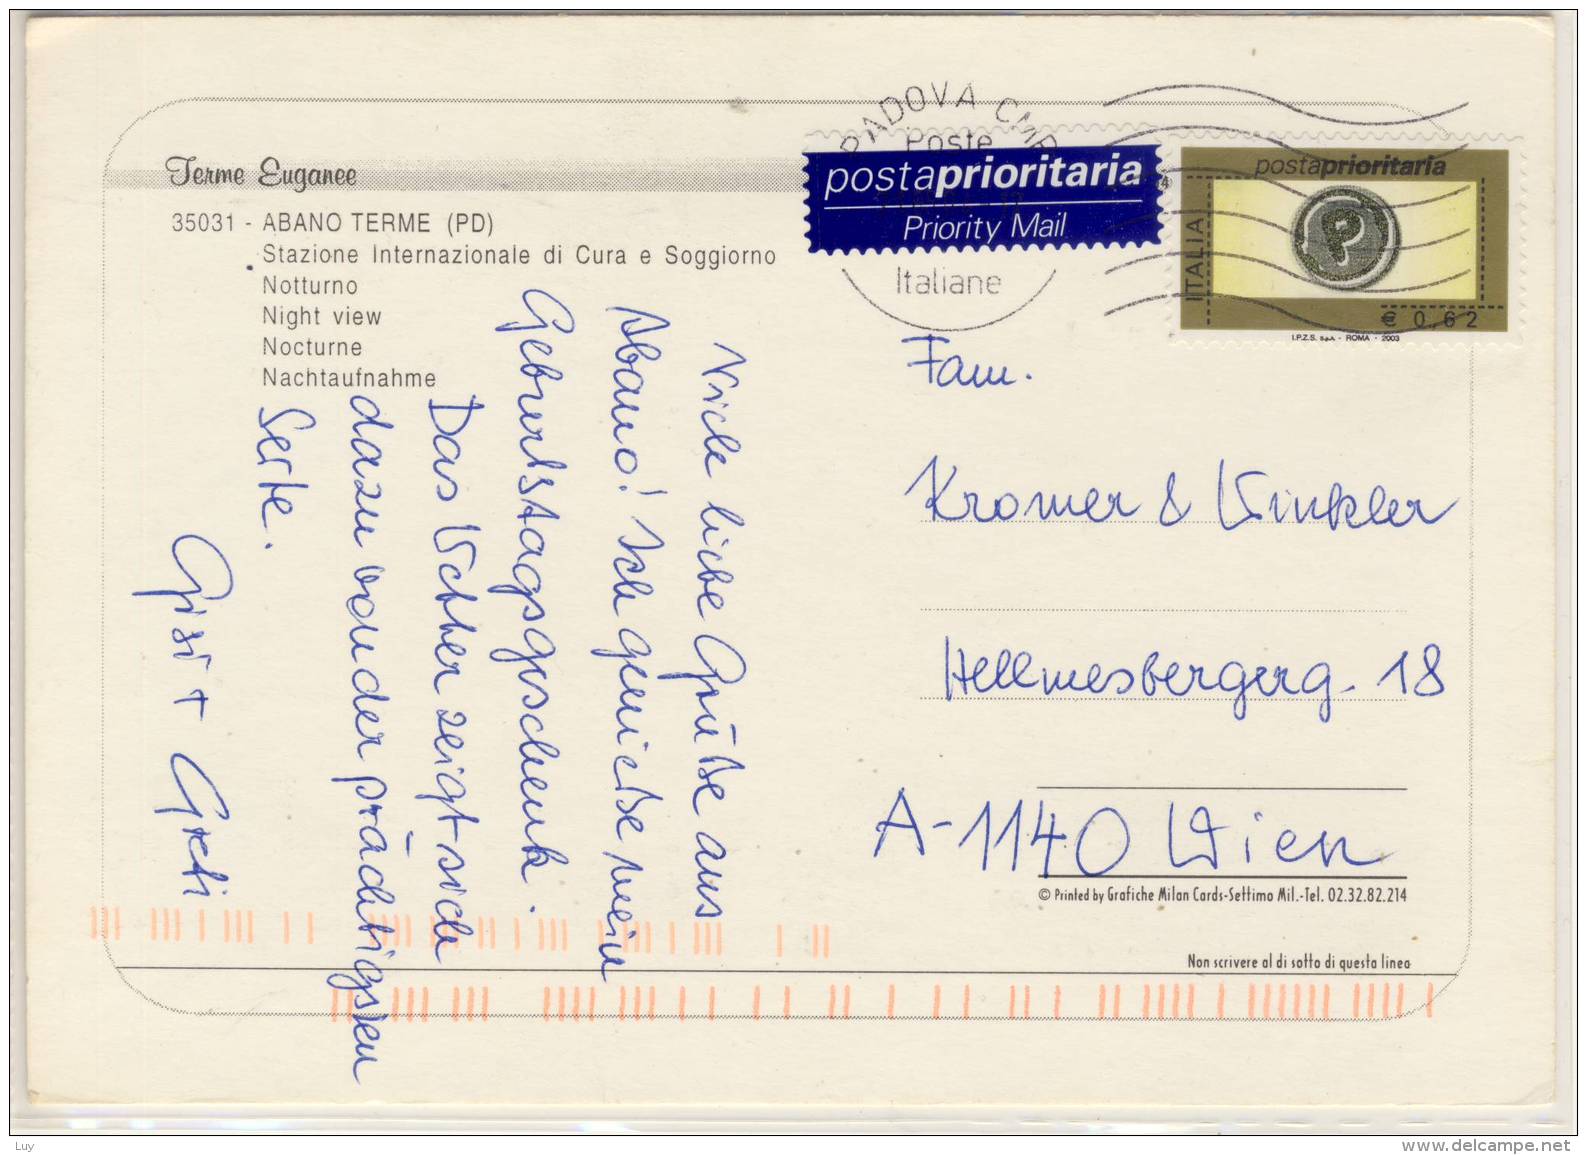 Terme Euganee
35031 - ABANO TERME (PD)
Stazione Internazionale di Cura e Soggiorno
Notturno
Night view
Nocturne
Nachtaufnahme
Viele liebe Grüße aus
Abano! Ich genieße mein
Geburtstagsgeschenk.
Das Wetter zeigt sich
dazu von der prächtigsten
Seite.
Gisi + Greti
PADOVA CMP
Poste
Italiane
postaprioritaria
Priority Mail
postaprioritaria
ITALIA
P
€ 0,62
I.P.Z.S. S.p.A. - ROMA - 2003
Fam.
Kromer & Winkler
Hellmesbergerg. 18
A-1140 Wien
© Printed by Grafiche Milan Cards-Settimo Mil.-Tel. 02.32.82.214
Non scrivere al di sotto di questa linea
Luy
www.delcampe.net